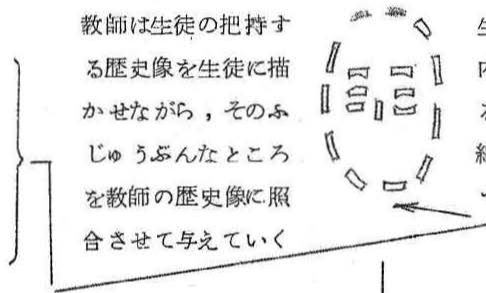 教師は生徒の把持す
る歴史像を生徒に描
かせながら，そのふ
じゅうぶんなところ
を教師の歴史像に照
合させて与えていく